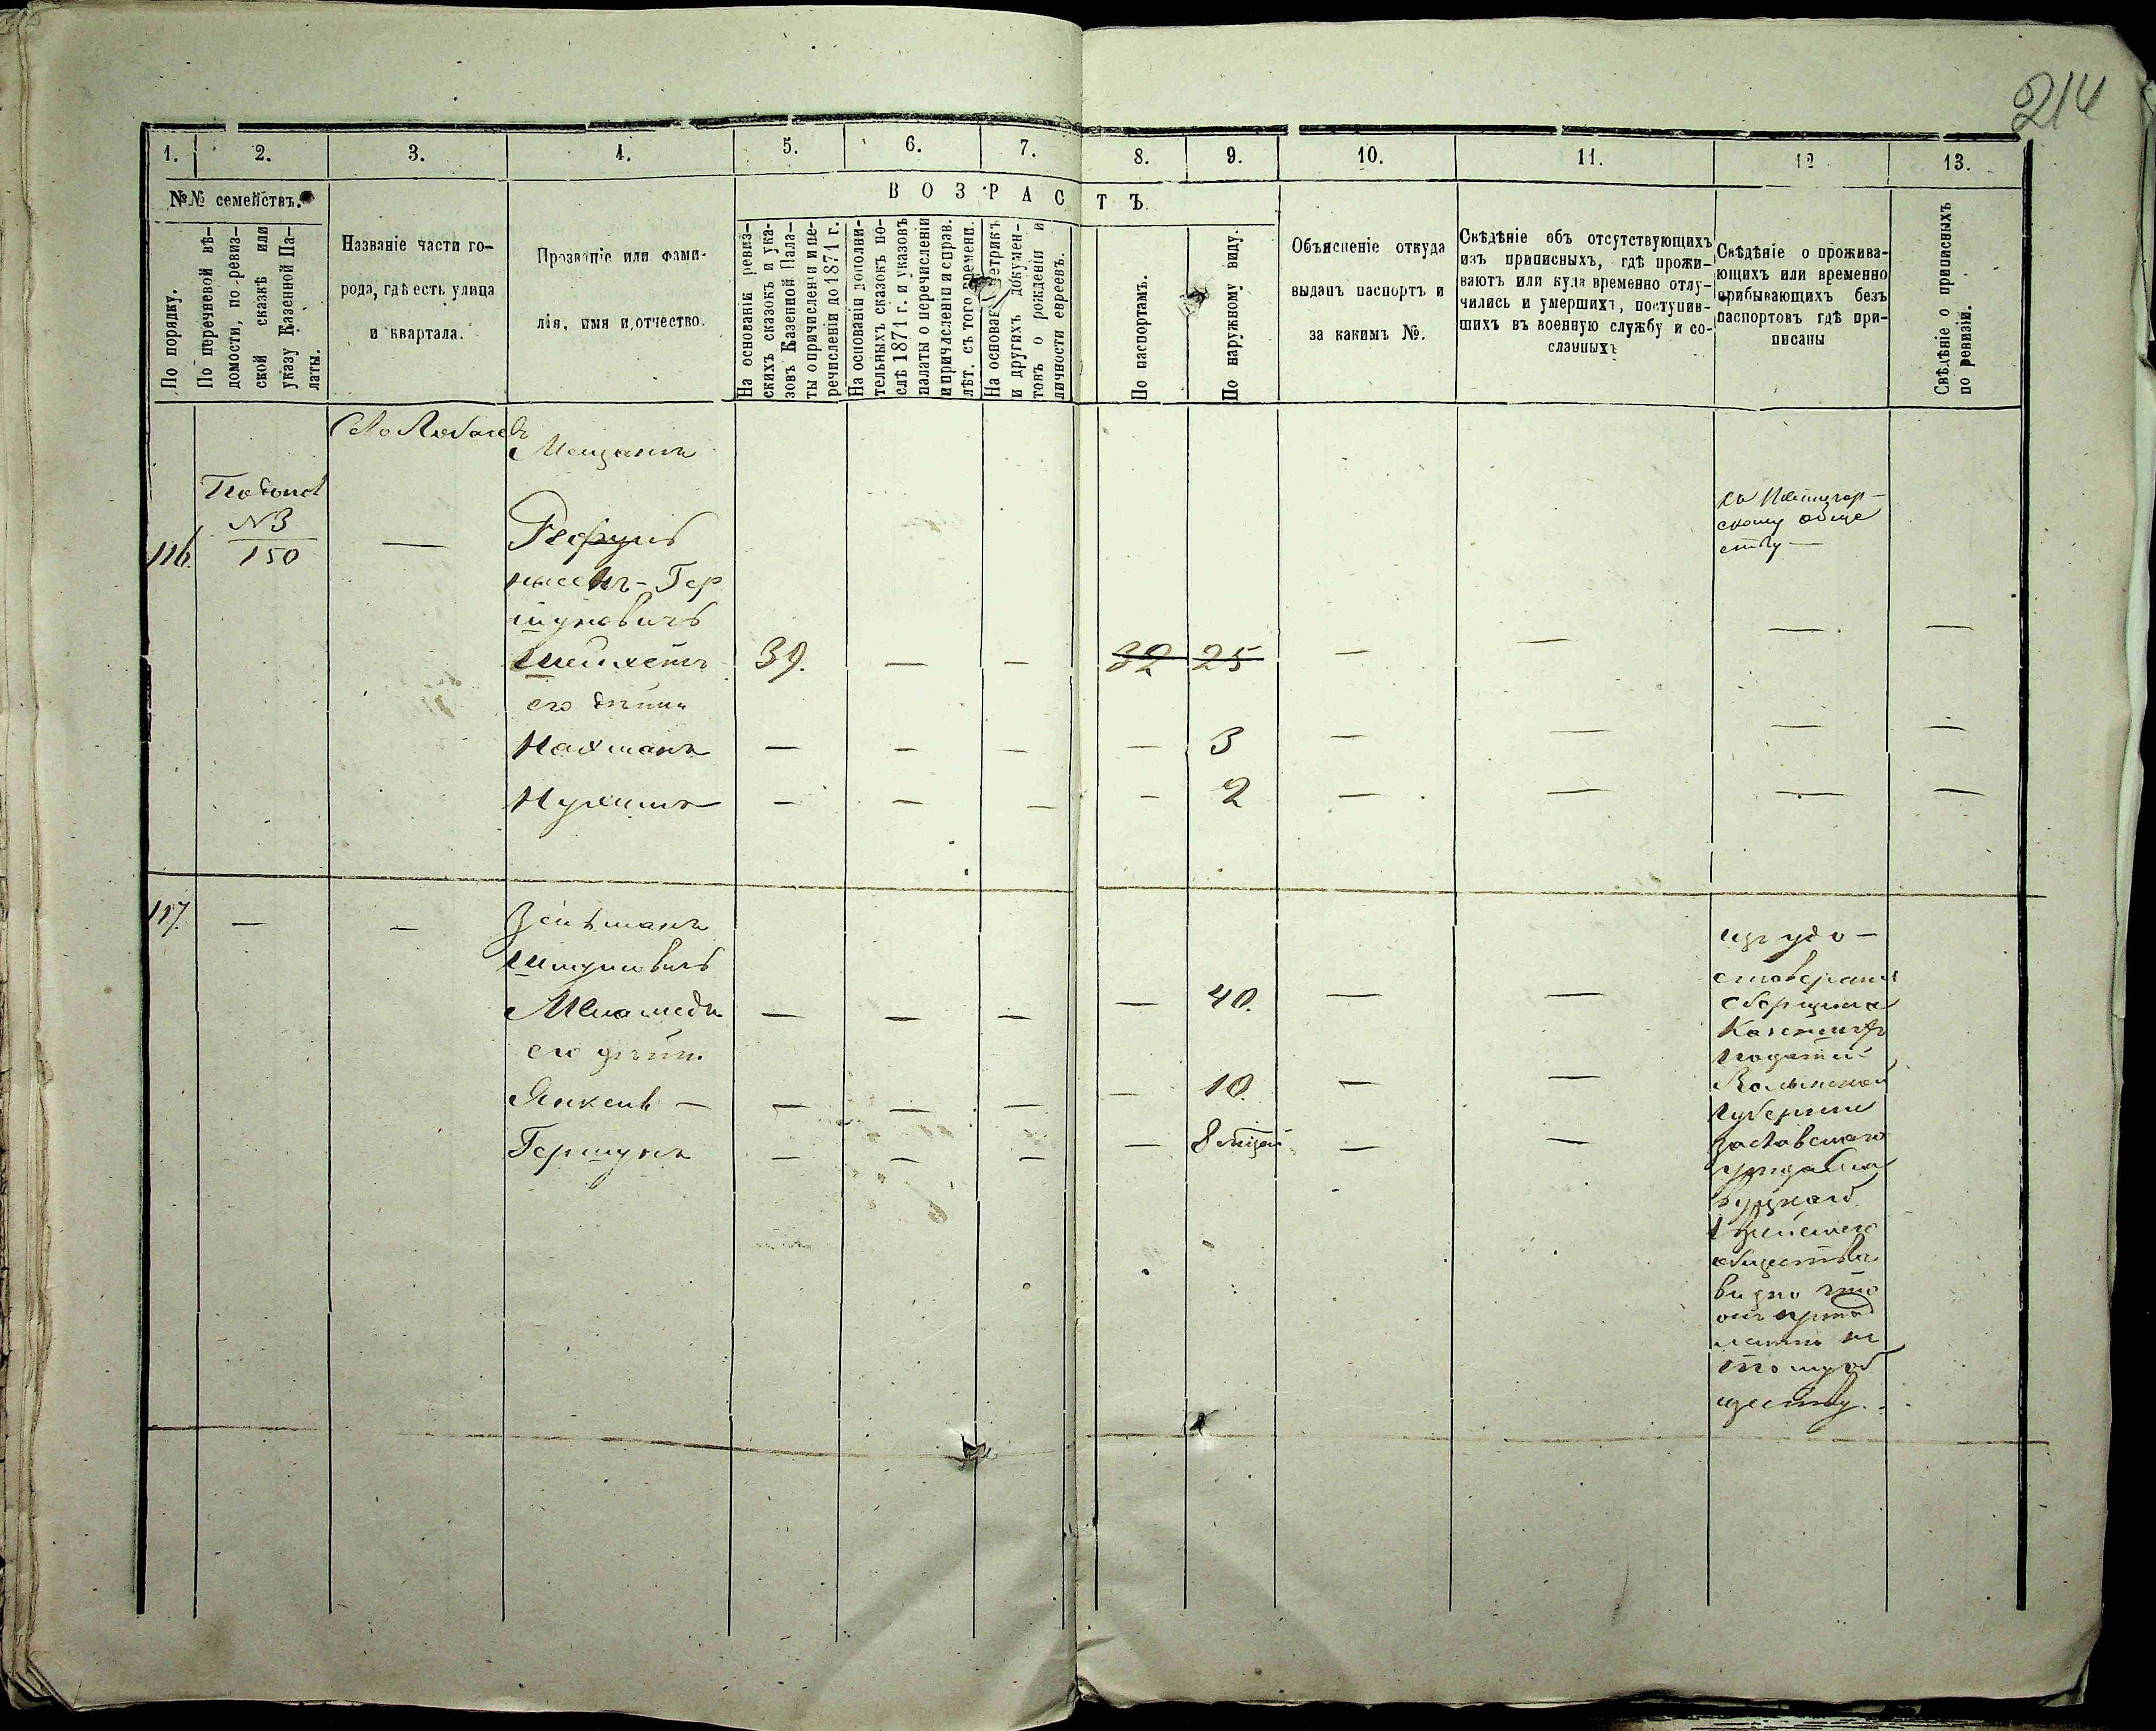 214
1. 2. 3. 4. 5. 6. 7. 8. 9. 10. 11. 12 13.
№№ семействъ.
ВОЗРАСТЪ
По порядку.
По перечневой вѣ-
домости, по ревиз-
ской сказкѣ или
указу Казенной Па-
латы.
Названіе части го-
рода, гдѣ есть улица
и квартала.
Прозваніе или фами-
лія, имя и отчество.
На основаніи ревиз-
скихъ сказокъ и ука-
зовъ Казенной Пала-
ты о причисленіи и пе-
речисленіи до 1871 г.
На основаніи дополни-
тельныхъ сказокъ по-
слѣ 1871 г. и указовъ
палаты о перечисленіи
и причисленіи и справ.
лѣт. съ того времени.
На основаніи метрикъ
и другихъ докумен-
товъ о рожденіи и
личности евреевъ.
По паспортамъ.
По наружному виду.
Объясненіе откуда
выданъ паспортъ и
за какимъ №.
Свѣдѣніе объ отсутствующихъ
изъ приписныхъ, гдѣ прожи-
ваютъ или куда временно отлу-
чились и умершихъ, поступив-
шихъ въ военную службу и со-
сланныхъ
Свѣдѣніе о прожива-
ющихъ или временно
прибывающихъ безъ
паспортовъ гдѣ при-
писаны
Свѣдѣніе о приписныхъ
по ревизіи.
Мещане
116. №3
150
—
Гер
шуновичъ
Шейхетъ 39. — — 32 25 — — — —
его дѣти
Нахманъ — — — — 3 — — — —
Нухимъ — — — — 2 — — — —
скому обще
ству —
117. — — Зейтманъ
Шмулиовичъ
Меламедъ — — — — 40. — —
его дѣти
Янкель — — — — — 10. — —
Гершунъ — — — — 8 — —
изъ удо-
стоверенія
сборщика
Казенныхъ
податей
Волынской
Губерніи
Заславского
общества
видно что